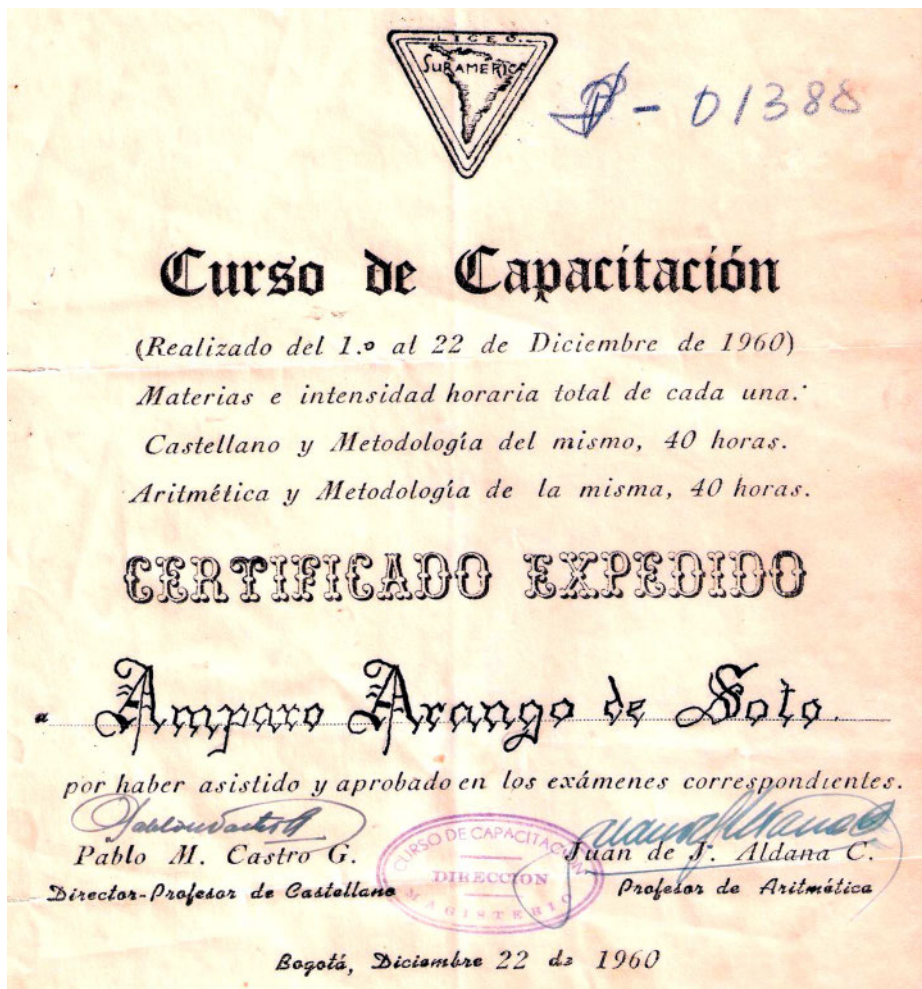 LICEO
SURAMERICA
- 01388
Curso de Capacitación
(Realizado del 1.º al 22 de Diciembre de 1960)
Materias e intensidad horaria total de cada una:
Castellano y Metodología del mismo, 40 horas.
Aritmética y Metodología de la misma, 40 horas.
CERTIFICADO EXPEDIDO
a Amparo Arango de Soto.
por haber asistido y aprobado en los exámenes correspondientes.
Pablo M. Castro G. Juan de J. Aldana C.
Director-Profesor de Castellano Profesor de Aritmética
CURSO DE CAPACITACION
DIRECCION
MAGISTERIO
Bogotá, Diciembre 22 de 1960